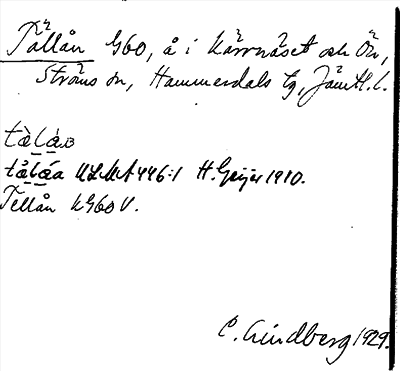 Tällån G60, å i Kärrnäset och Ön,
Ströms sn, Hammerdals tg, Jämtl. l.
tὰlάɷ
tålåa ULMA 446:1 H. Geijer 1910.
Tellån KG60V.
C. Lindberg 1929.